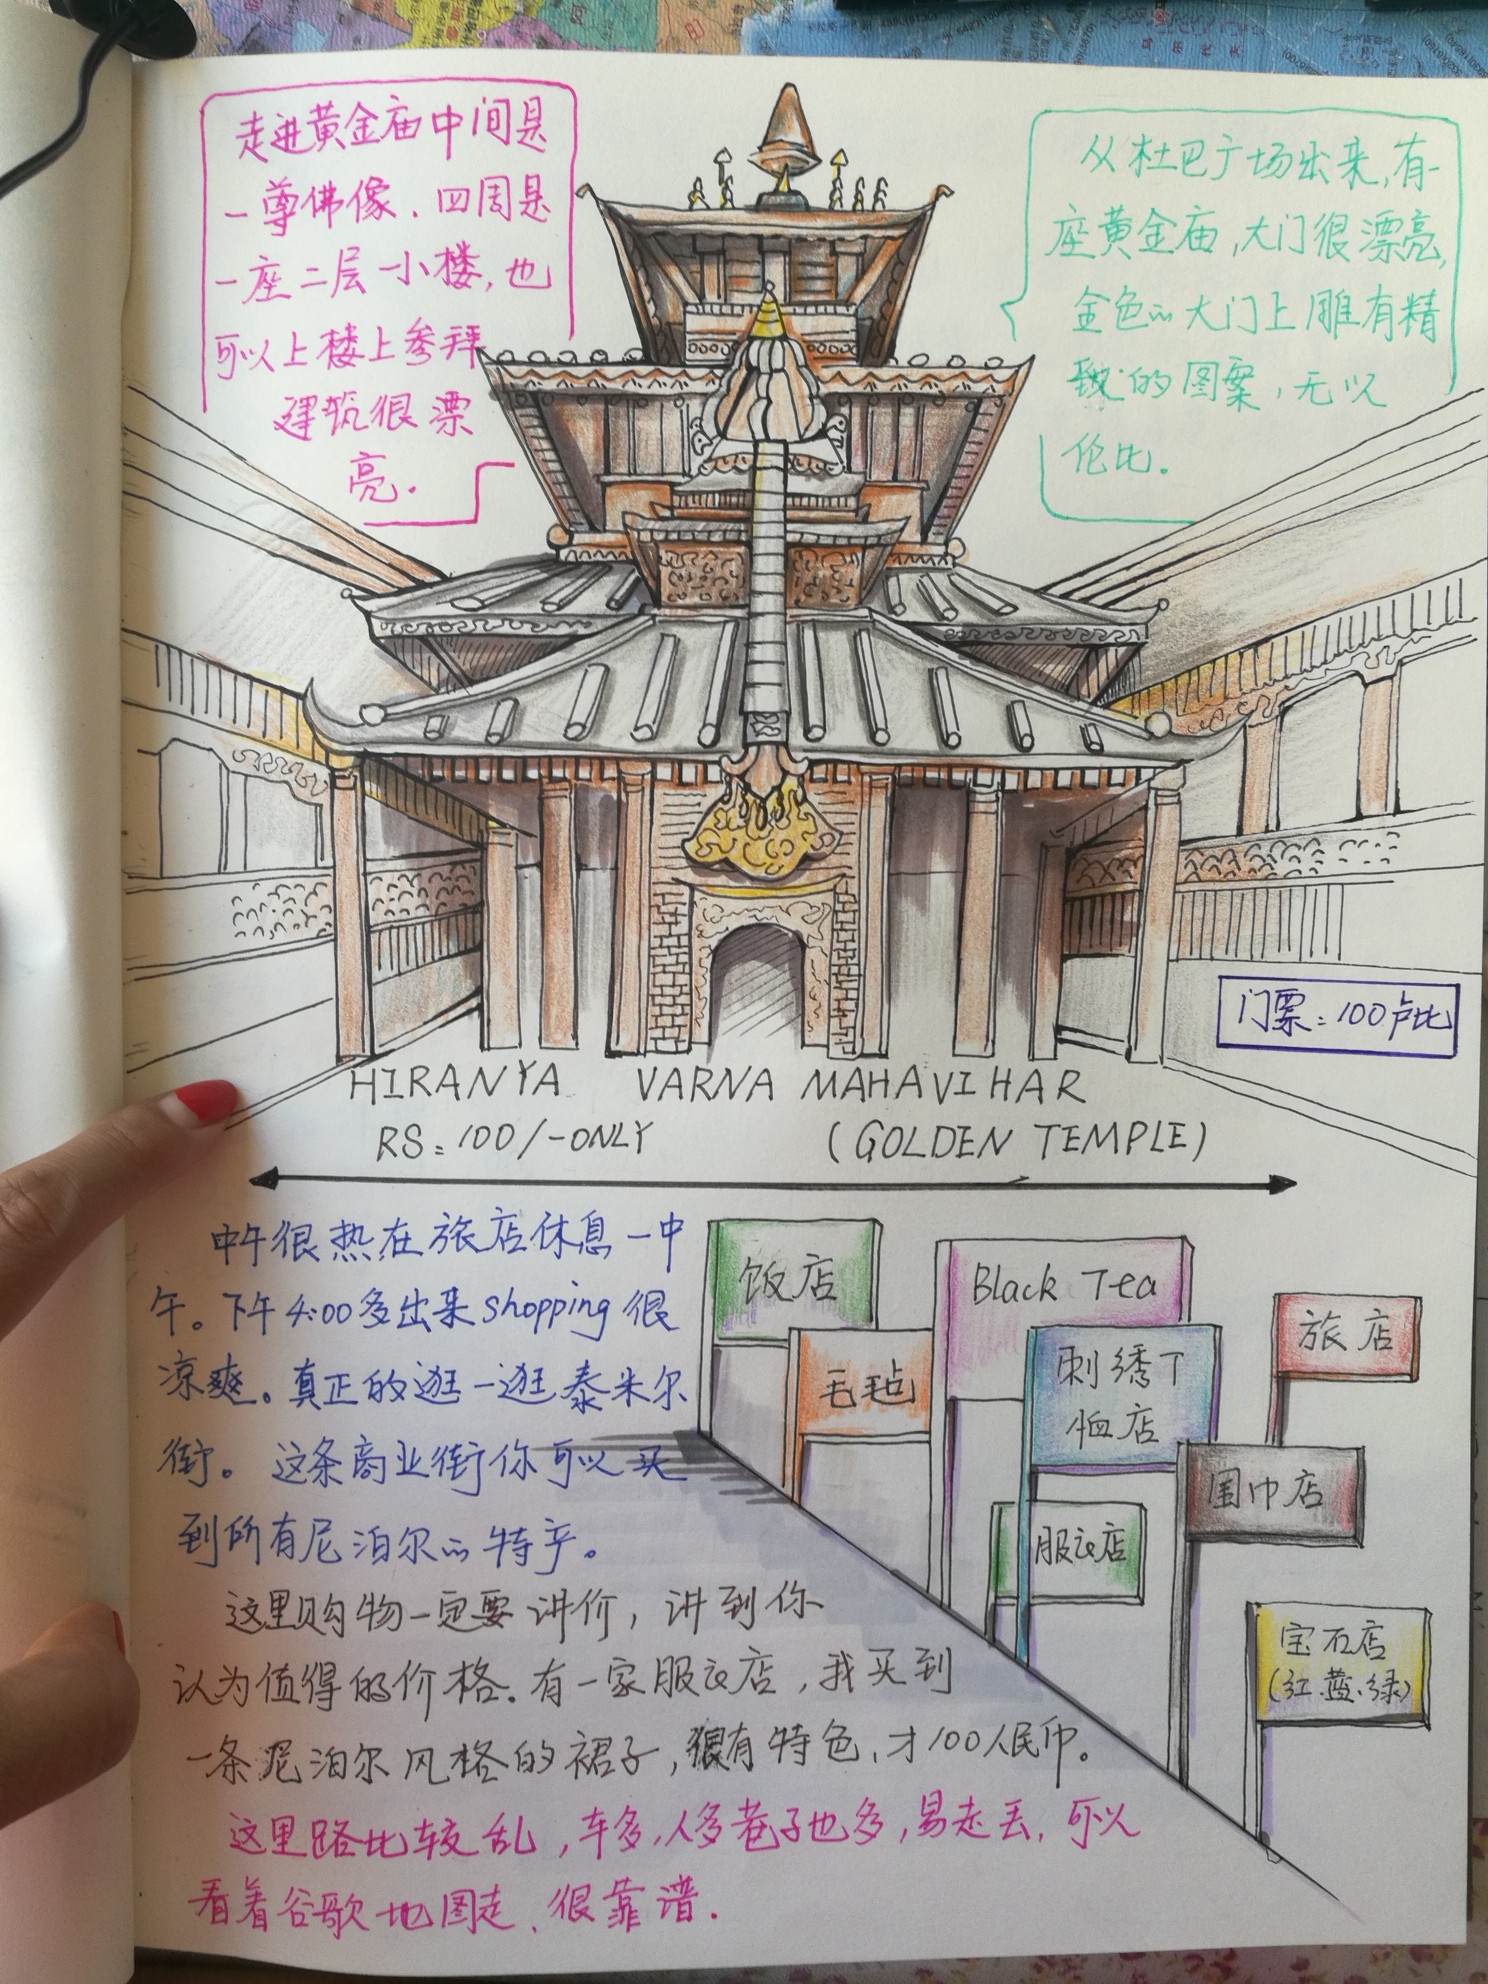 走进黄金庙中间是
一尊佛像.四周是
一座二层小楼,也
可以上楼上参拜
建筑很漂
亮.
从杜巴广场出来,有一
座黄金庙,大门很漂亮,
金色的大门上雕有精
致的图案,无以
伦比.
门票:100卢比
HIRANYA VARNA MAHAVIHAR
RS:100/-ONLY (GOLDEN TEMPLE)
中午很热在旅店休息一中
午。下午4:00多出来shopping很
凉爽。真正的逛一逛泰米尔
街。这条商业街你可以买
到所有尼泊尔的特产。
这里购物一定要讲价,讲到你
认为值得的价格.有一家服衣店,我买到
一条尼泊尔风格的裙子,很有特色,才100人民币。
这里路比较乱,车多,人多巷子也多,易走丢,可以
看着谷歌地图走、很靠谱.
饭店
毛毡
Black Tea
刺绣T
恤店
旅店
围巾店
服衣店
宝石店
(红.蓝.绿)